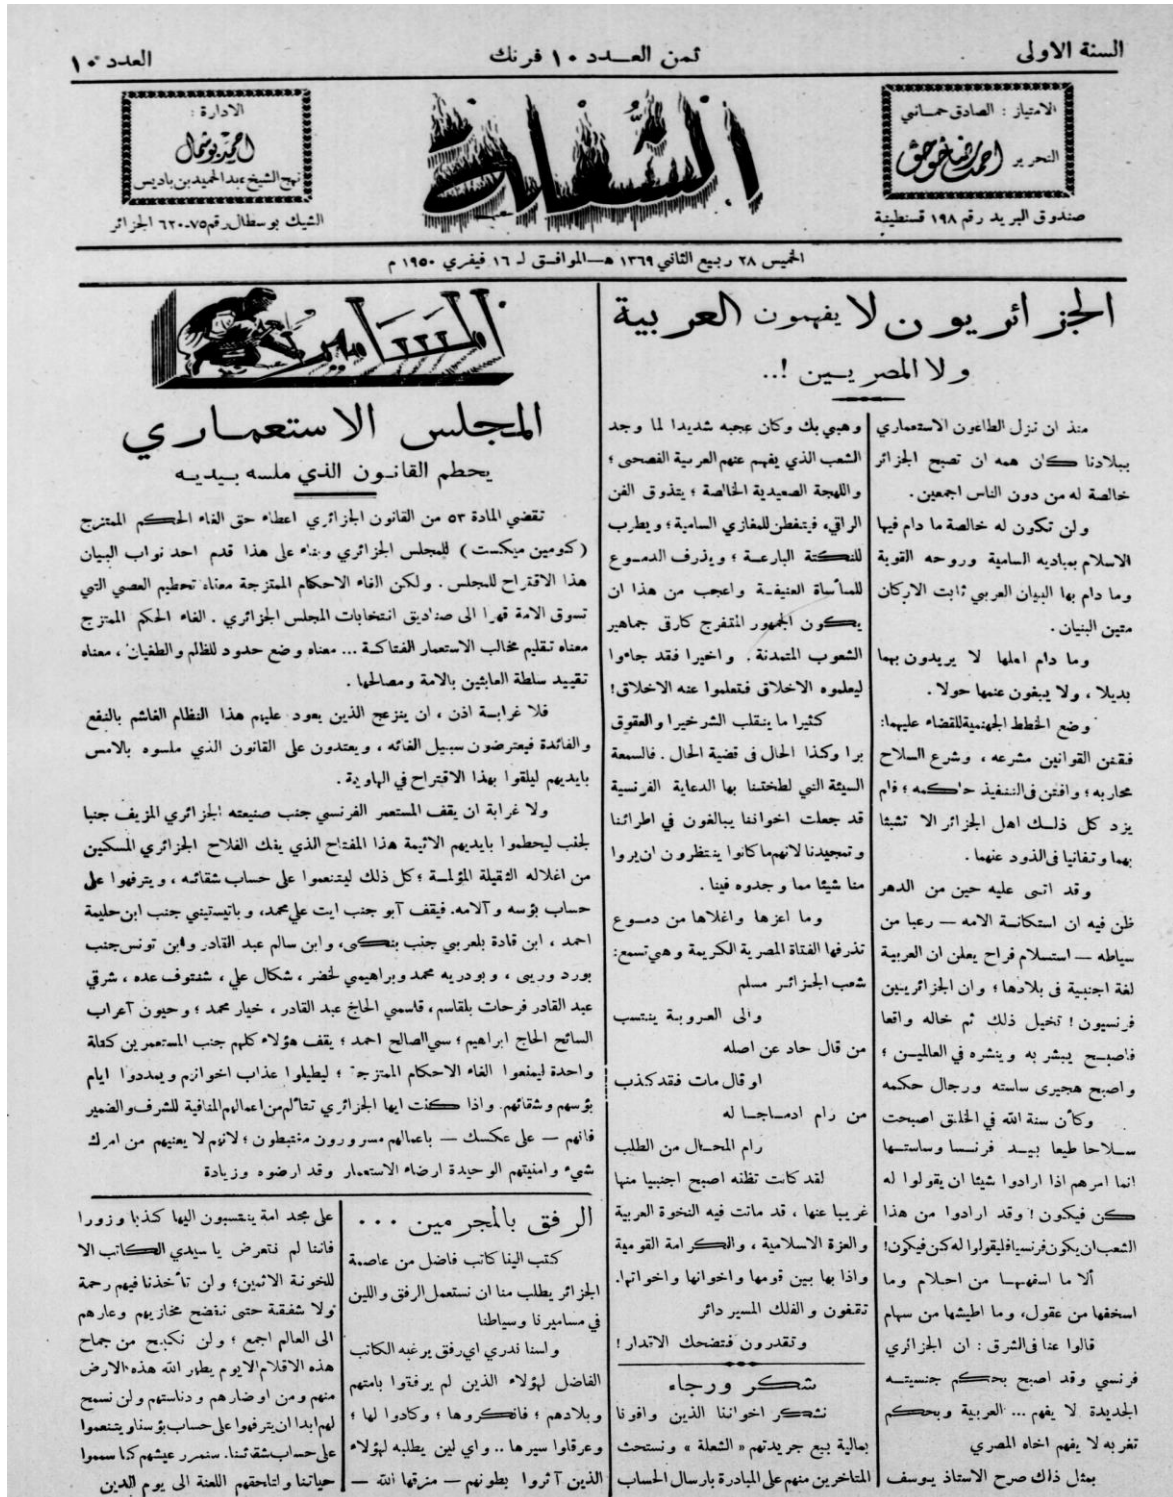 السنة الاولى
ثمن العــدد ١٠ فرنك
العدد ١٠
الامتياز : الصادق حمــاني
التحرير احمد رضا حوحو
صندوق البريد رقم ١٩٨ قسنطينة
الشعلة
الادارة :
احمد بوشمال
نهج الشيخ عبد الحميد بن باديس
الشيك بوسطال رقم ٧٥-٦٢٠ الجزائر
الخميس ٢٨ ربيع الثاني ١٣٦٩ هـ—الموافـق لـ ١٦ فيفري ١٩٥٠ م
الجزائريون لا يفهمون العربية
ولا المصريـين !..
منذ ان نزل الطاعون الاستعماري
ببلادنا كان همه ان تصبح الجزائر
خالصة له من دون الناس اجمعين .
ولن تكون له خالصة ما دام فيها
الاسلام بمباديه السامية وروحه القوية
وما دام بها البيان العربي ثابت الاركان
متين البنيان .
وما دام اهلها لا يريدون بهما
بديلا ، ولا يبغون عنهما حولا .
وضع الخطط الجهنمية للقضاء عليهما:
فقنن القوانين مشرعه ، وشرع السلاح
محاربه ؛ وافتن فى التنفيذ حاكمه ؛ فلم
يزد كل ذلـك اهل الجزائر الا تشبثا
بهما وتفانيا فى الذود عنهما .
وقد اتــى عليه حين من الدهر
ظن فيه ان استكانة الامه — رعبا من
سياطه — استسلام فراح يعلن ان العربية
لغة اجنبية فى بلادها ؛ وان الجزائريـين
فرنسيون ! تخيل ذلك ثم خاله واقعا
فاصبــح يبشر به وينشره في العالميـن ؛
واصبح هجيرى ساسته ورجال حكمه
وكأن سنة الله في الخلـق اصبحت
سـلاحا طيعا بيـد فرنسـا وساستـها
انما امرهم اذا ارادوا شيئا ان يقولوا له
كـن فيكون ! وقد ارادوا من هذا
الشعب ان يكون فرنسيا فليقولوا له كن فيكون!
ألا ما اسفههـا من احلام وما
اسخفها من عقول، وما اطيشها من سهام
قالوا عنا فى الشرق : ان الجزائري
فرنسي وقد اصبح بحكم جنسيتــه
الجديدة لا يفهم ... العربية وبحكـم
تغربه لا يفهم اخاه المصري
بمثل ذلك صرح الاستاذ يـوسف
وهبي بك وكان عجبه شديدا لما وجد
الشعب الذي يفهم عنهم العربية الفصحى ؛
واللهجة الصعيدية الخالصة ؛ يتذوق الفن
الراقي، فيتفطن للمغازي السامية ؛ ويطرب
للنكتة البارعـة ؛ ويذرف الدمـوع
للمأساة العنيفـة واعجب من هذا ان
يكـون الجمهور المتفرج كارقى جماهير
الشعوب المتمدنة . واخيرا فقد جاءوا
ليعلموه الاخلاق فتعلموا عنه الاخلاق!
كثيرا ما ينقلب الشر خيرا والعقوق
برا وكـذا الحال فى قضية الحال . فالسمعة
السيئة التي لطختنا بها الدعاية الفرنسية
قد جعلت اخواننا يبالغون في اطرائنا
وتمجيدنا لانهم ما كانوا ينتظرون ان يروا
منا شيئا مما وجدوه فينا .
وما اعزها واغلاها من دمـوع
تذرفها الفتاة المصرية الكريمة وهي تسمع:
شعب الجـزائـر مسلم
والى العـروبـة ينتسب
من قال حاد عن اصله
او قال مات فقد كذب
من رام ادمــاجــا له
رام المحـال من الطلب
لقد كانت تظنه اصبح اجنبيا منها
غريبا عنها ، قد ماتت فيه النخوة العربية
والعزة الاسلامية ، والكرامة القومية
واذا بها بين قومها واخوانها واخواتها.
تقفون والفلك المسير دائر
وتقدرون فتضحك الاقدار !
شكـر ورجاء
نشكـر اخواننا الذين وافونا
بمالية بيع جريدتهم « الشعلة » ونستحث
المتاخرين منهم على المبادرة بارسال الحساب
المسامير
المجلس الاستعمـاري
يحطم القانـون الذي ملسه بـيديـه
تقضي المادة ٥٣ من القانون الجزائري اعطاء حق الغاء الحكم الممتزج
( كومين ميكست ) للمجلس الجزائري وبناء على هذا قدم احد نواب البيان
هذا الاقتراح للمجلس . ولكن الغاء الاحكام الممتزجة معناه تحطيم العصي التي
تسوق الامة قهرا الى صناديق انتخابات المجلس الجزائري . الغاء الحكم الممتزج
معناه تقليم مخالب الاستعمار الفتاكـة ... معناه وضع حدود للظلم والطغيان ، معناه
تقييد سلطة العابثين بالامة ومصالحها .
فلا غرابـة اذن ، ان ينزعج الذين يعود عليهم هذا النظام الغاشم بالنفع
والفائدة فيعترضون سبيل الغائه ، ويعتدون على القانون الذي ملسوه بالامس
بايديهم ليلقوا بهذا الاقتراح في الهاوية .
ولا غرابة ان يقف المستعمر الفرنسي جنب صنيعته الجزائري المزيف جنبا
لجنب ليحطموا بايديهم الاثيمة هذا المفتاح الذي يفك الفلاح الجزائري المسكين
من اغلاله الثقيلة المؤلمـة ؛ كل ذلك ليتنعموا على حساب شقائه ، ويترفهوا على
حساب بؤسه وآلامه. فيقف آبو جنب ايت علي محمد، وباتيستيني جنب ابن حليمة
احمد ، ابن قادة بلعربي جنب بنكـي، وابن سالم عبد القادر وابن تونس جنب
بورد وربى ، وبودربه محمد وبراهيمي لخضر ، شكال علي ، شنتوف عده ، شرقي
عبد القادر فرحات بلقاسم ، قاسمي الحاج عبد القادر ، خيار محمد ؛ وحيون آعراب
السائح الحاج ابراهيم ؛ سي الصالح احمد ؛ يقف هؤلاء كلهم جنب المستعمرين كتلة
واحدة ليمنعوا الغاء الاحكام الممتزجة ؛ ليطيلوا عذاب اخوانهم ويمددوا ايام
بؤسهم وشقائهم. واذا كـنت ايها الجزائري تتألم من اعمالهم المنافية للشرف والضمير
فانهم — على عكسك — باعمالهم مسرورون مغتبطون ؛ لانهم لا يعنيهم من امرك
شيء وامنيتهم الوحيدة ارضاء الاستعمار وقد ارضوه وزيادة
الرفق بالمجرمين ...
كتب الينا كاتب فاضل من عاصمة
الجزائر يطلب منا ان نستعمل الرفق واللين
في مساميرنا وسياطنا
ولسنا ندري اي رفق يرغبه الكاتب
الفاضل لهؤلاء الذين لم يرفقوا بامتهم
وبلادهم ؛ فانكـروها ؛ وكادوا لها ؛
وعرقلوا سيرها .. واي لين يطلبه لهؤلاء
الذين آثروا بطونهم — مزقها الله —
على مجد امة ينتسبون اليها كذبا وزورا
فاننا لم نتعرض يا سيدي الكـاتب الا
للخونة الاثمين؛ ولن تأخذنا فيهم رحمة
ولا شفقة حتى نفضح مخازيهم وعارهم
الى العالم اجمع ؛ ولن نكبح من جماح
هذه الاقلام الا يوم يطهر الله هذه الارض
منهم ومن اوضارهم ودناستهم ولن نسمح
لهم ابدا ان يترفهوا على حساب بؤسنا ويتنعموا
على حساب شقائنا. سنمرر عيشهم كما سمموا
حياتنا ولتلحقهم اللعنة الى يوم الدين